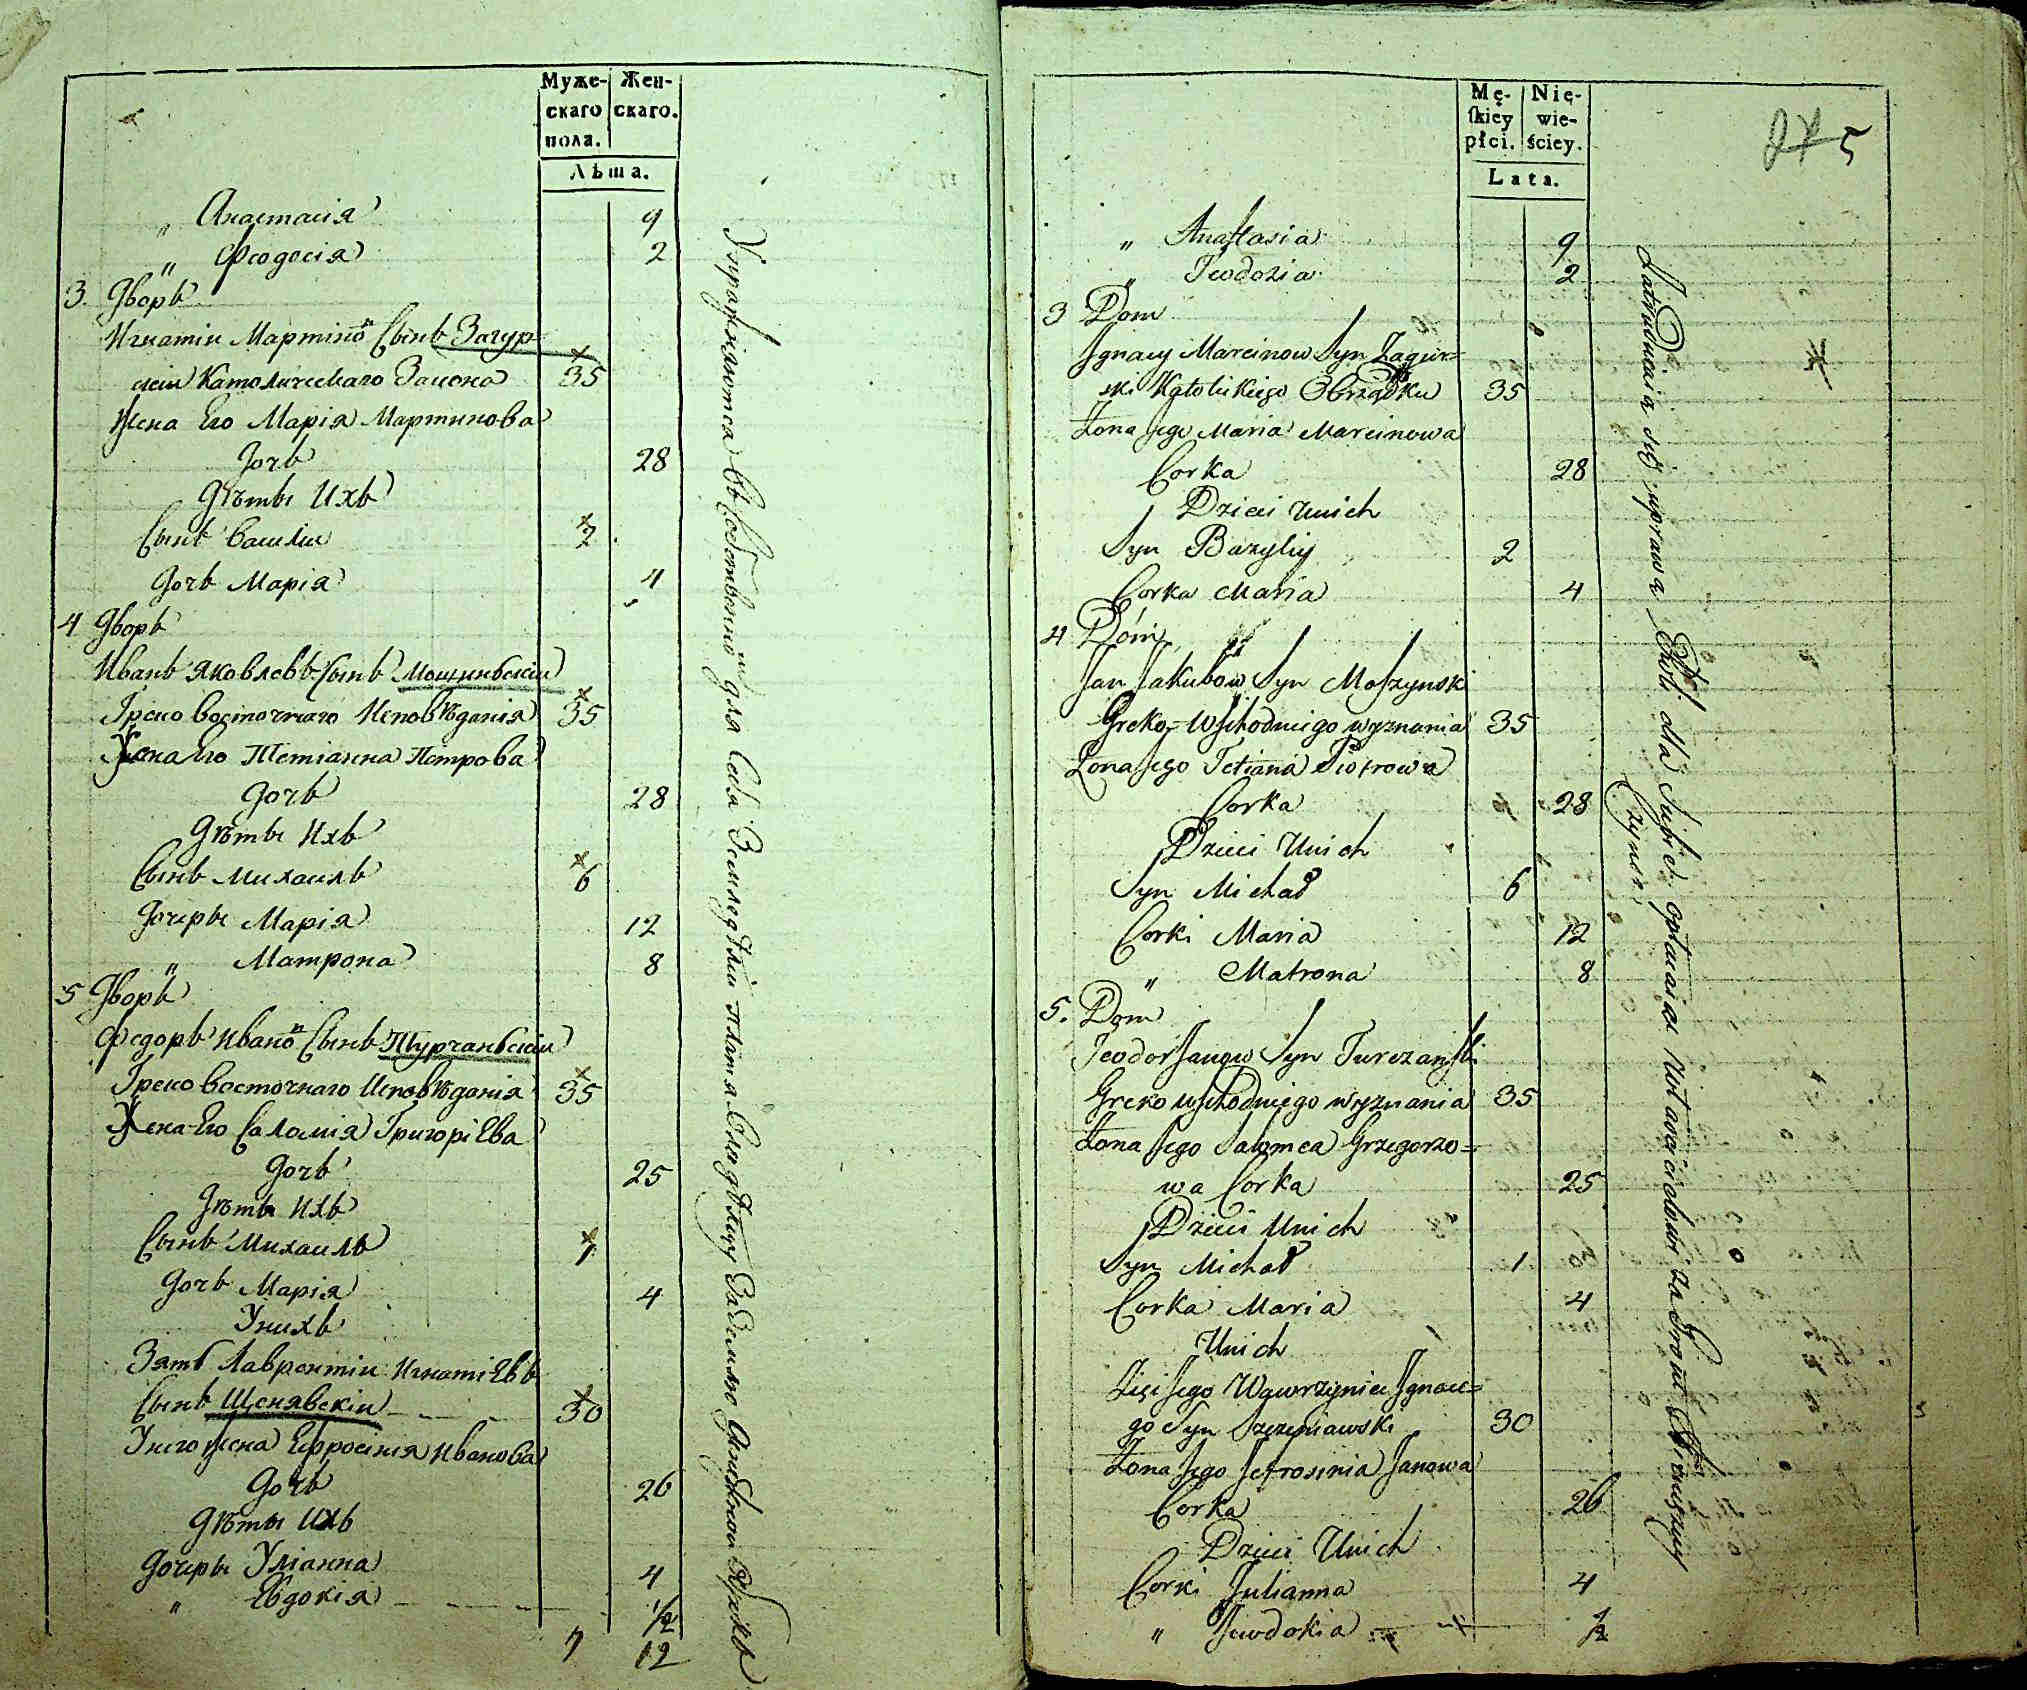 Муже-
скаго
пола.
Жен-
скаго.
Лѣта.
„ Анастасія 9
„ Феодосія 2
3. Дворъ
Игнатіи Мартіно Сынъ Загур-
скіи Католическаго Закона 35
Жена Его Марія Мартинова
Дочь 28
Дѣти Ихъ
Сынъ Василіи 2
Дочь Марія 4
4 Дворъ
Иванъ Яковлевъ Сынъ Мощинскіи
Греко восточнаго Исповѣданія 35
Жена Его Тетіанна Петрова
Дочь 28
Дѣти Ихъ
Сынъ Михаилъ 6
Дочеры Марія 12
„ Матрона 8
5 Дворъ
Федоръ Ивано Сынъ Турчанскіи
Греко восточнаго Исповѣданія 35
Жена Его Саломія Григоріева
Дочь 25
Дѣти Ихъ
Сынъ Михаилъ 1
Дочь Марія 4
Унихъ
Зять Лаврентіи Игнатіевъ
Сынъ Щенявскіи 30
Унего жена Ефросинія Иванова
Дочь 26
Дѣти Ихъ
Дочеры Уліанна 4
„ Евдокія 1/2
7 12
Упражняются въ для Себя Земледѣліи платя Владѣльцу
Mę-
skiey
płci.
Nię-
wie-
ściey.
Lata.
5
„ Anastasia 9
„ Teodozia 2
3 Dom
Ignacy Marcinow Syn Zagur=
ski Katolickiego Obrządku 35
Żona Jego Maria Marcinowa
Corka 28
Dzieci Unich
Syn Bazyliy 2
Corka Maria 4
4 Dom
Jan Jakubow Syn Moszynski
Greko-Wschodniego wyznania 35
Żona Jego Tetiana Piotrowa
Corka 28
Dzieci Unich
Syn Michał 6
Corki Maria 12
„ Matrona 8
5. Dom
Teodor Janow Syn Turczanski
Greko wschodniego wyznania 35
Żona Jego Salomea Grzegorzo=
wa Corka 25
Dzieci Unich
Syn Michał 1
Corka Maria 4
Unich
Zięć Jego Wawrzyniec Ignace=
go Syn Szczeniawski 30
Żona Jego Jefrosinia Janowa
Corka 26
Dzieci Unich
Corki Julianna 4
„ Jewdokia 1/2
Zatrudniaią się uprawą Roli dla Siebie opłacaiąc Właścicielowi za Grunt
Czynsz